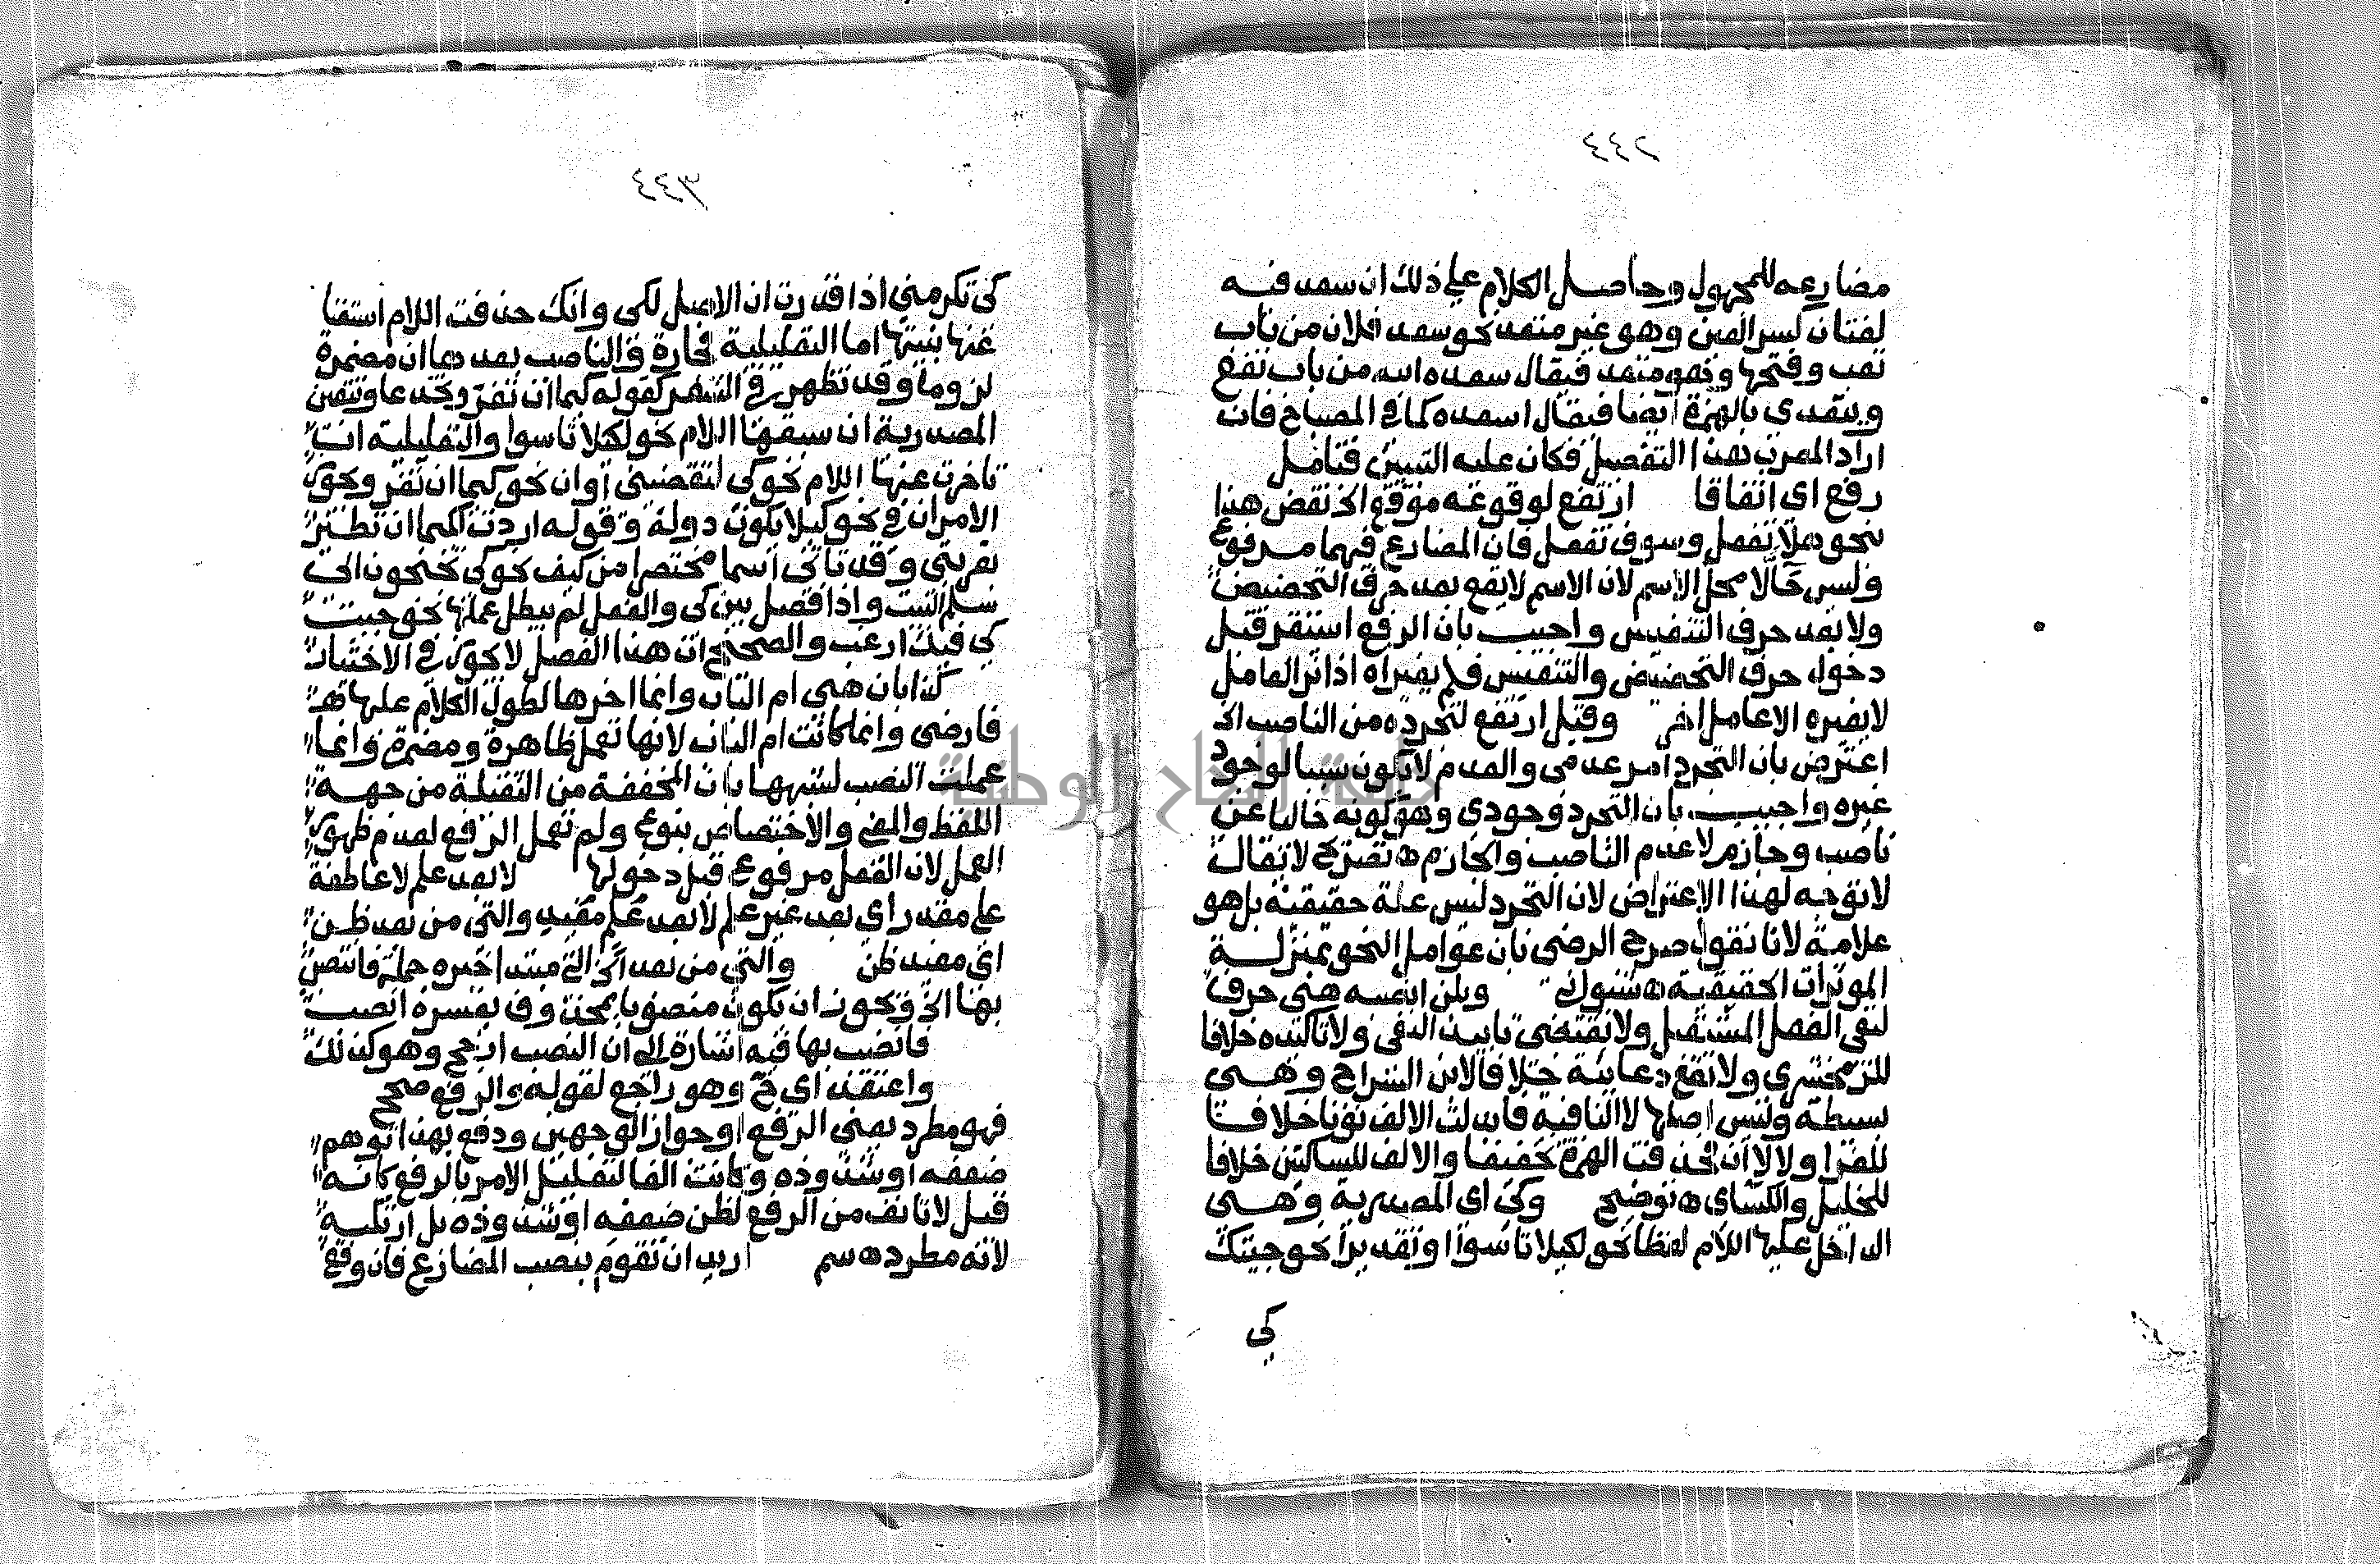 ٤٤٢
مضارعه للمجهول وحاصل الكلام على ذلك ان سعد فيه
لغتان كسر العين وهو غير متعد نحو سعد فلان من باب
تعب وفتحها وهو متعد فيقال سعده الله من باب نفع
ويتعدى بالهمزة ايضا فيقال اسعده كما في المصباح فان
اراد المعرب هذا التفصيل فكان عليه التبيين فتامل
رفع اى اتفاقا ارتفع لوقوعه موقع الخ نقض هذا
بنحو هلا تفعل وسوف تفعل فان المضارع فيهما مرفوع
وليس حالا محل الاسم لان الاسم لا يقع بعد حرف التحضيض
ولا بعد حرف التنفيس واجيب بان الرفع استقر قبل
دخول حرف التحضيض والتنفيس فلم يغيراه اذ اثر العامل
لا يغيره الا عامل اخر وقيل ارتفع لتجرده من الناصب الخ
اعترض بان التجرد امر عدمى والعدم لا يكون سببا لوجود
غيره واجيب بان التجرد وجودى وهو كونه خاليا عن
ناصب وجازم لا عدم الناصب والجازم ه تصريح لا يقال
لا توجه لهذا الاعتراض لان التجرد ليس علة حقيقية بل هو
علامة لانا نقول صرح الرضى بان عوامل النحو بمنزلة
الموثرات الحقيقية ه شنوانى وبلن هى حرف
لنفى الفعل المستقبل ولا تقتضى تابيد النفى ولا تاكيده خلافا
للزمخشرى ولا تقع دعائية خلافا لابن السراج وهى
بسيطة وليس اصلها لا النافية فابدلت الالف نونا خلافا
للفرا ولا لا ان فحذفت الهمزة تخفيفا والالف للساكنين خلافا
للخليل والكساى ه توضيح وكى اى المصدرية وهى
الداخل عليها اللام لفظا نحو لكيلا تاسوا او تقديرا نحو جيتك
كى
٤٤٣
كى تكرمنى اذا قدرت ان الاصل لكى وانك حذفت اللام استغنا
عنها بنيتها اما التعليلية فجارة والناصب بعدها ان مضمرة
لزوما وقد تظهر فى الشعر كقوله كيما ان تغر وتخدعا وتتعين
المصدرية ان سبقها اللام نحو لكيلا تاسوا والتعليلية ان
تاخرت عنها اللام نحو كى لتقضينى او ان نحو كيما ان تغر ويجوز
الامران فى نحو كيلا يكون دولة وقوله اردت لكيما ان تطير
بقربتى وقد تاتى اسما مختصرا من كيف نحو كى تجنحون الى
سلم البيت واذا فصل بين كى والفعل لم يبطل عملها نحو جيت
كى فيك ارغب والصحيح ان هذا الفصل لا يجوز فى الاختيار
كذا بان هى ام الباب وانما اخرها لطول الكلام عليها ه
فارضى وانما كانت ام الباب لانها تعمل ظاهرة ومضمرة وانما
عملت النصب لشبهها بان المخففة من الثقيلة من جهة
اللفظ والمعنى والاختصاص بنوع ولم تعمل الرفع لعدم ظهور
العمل لان الفعل مرفوع قبل دخولها لا بعد علم لا عاطفة
على مقدر اى بعد غير علم لا بعد علم مفيد والتى من بعد ظن
اى مفيد ظن والتى من بعد الخ التى مبتدا خبره جملة فانصب
بها الخ ويجوز ان يكون منصوبا بمحذوف يفسره انصب
فانصب بها فيه اشارة الى ان النصب ارجح وهو كذلك
واعتقد اى خ وهو راجع لقوله والرفع صحح
فهو مطرد يعنى الرفع او جواز الوجهين ودفع بهذا توهم
ضعفه او شذوذه وكانت الفا لتعليل الامر بالرفع كانه
قيل لا تانف من الرفع لظن ضعفه او شذوذه بل ارتكبه
لانه مطرد ه سم اريد ان تقوم بنصب المضارع فان وقع